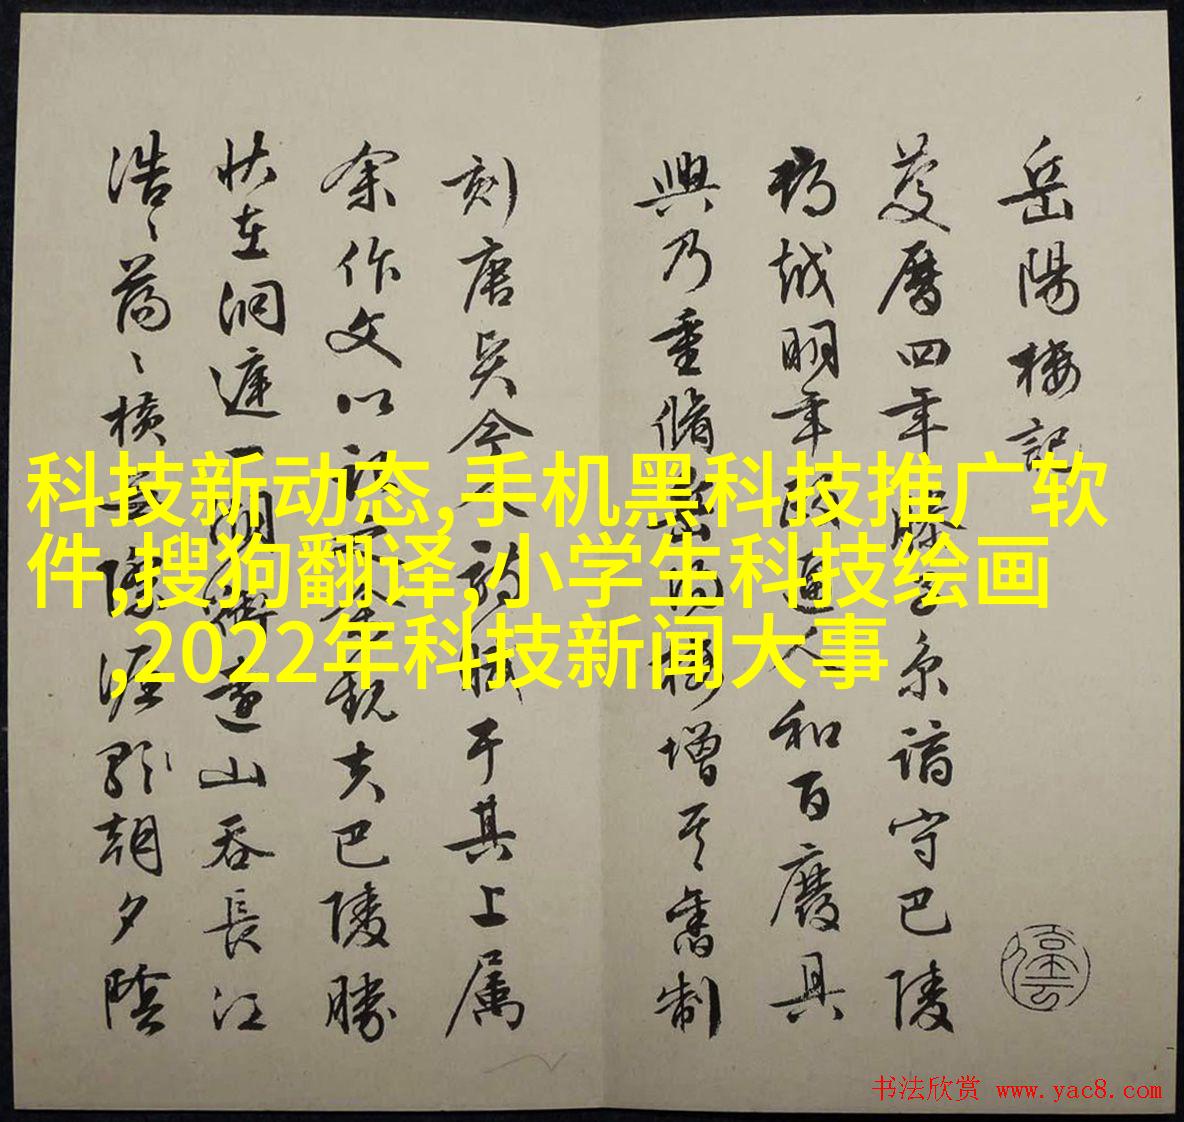 岳陽樓記
慶曆四年 滕子京謫守巴陵
郡越明年政通人和百廢具
興乃重脩岳陽樓增其舊制
刻唐吳今人詩賦于其上属
余作文以記之余觀夫巴陵勝
状在洞遳一湖銜遠山吞長江
浩〻蕩〻橫無際涯朝夕陰
科技新动态,手机黑科技推广软
件,搜狗翻译,小学生科技绘画
,2022年科技新闻大事
书法欣赏 www.yac8.com